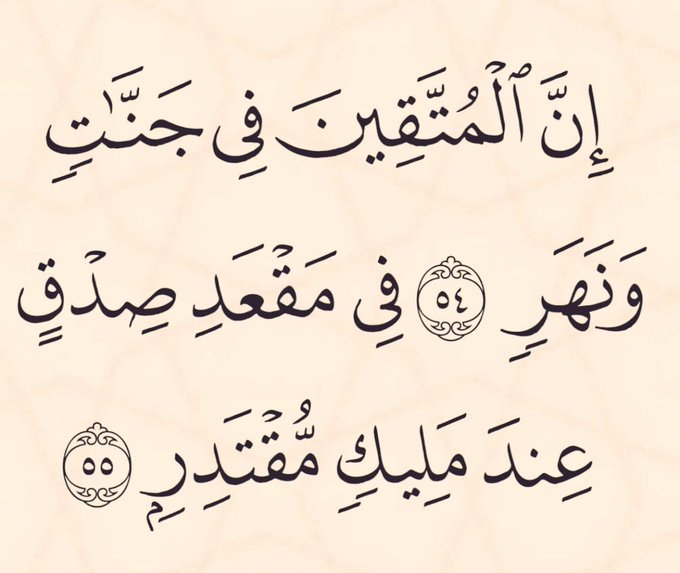 إِنَّ ٱلۡمُتَّقِينَ فِي جَنَّـٰتٖ
وَنَهَرٖ ٥٤ فِي مَقۡعَدِ صِدۡقٍ
عِندَ مَلِيكٖ مُّقۡتَدِرِۭ ٥٥